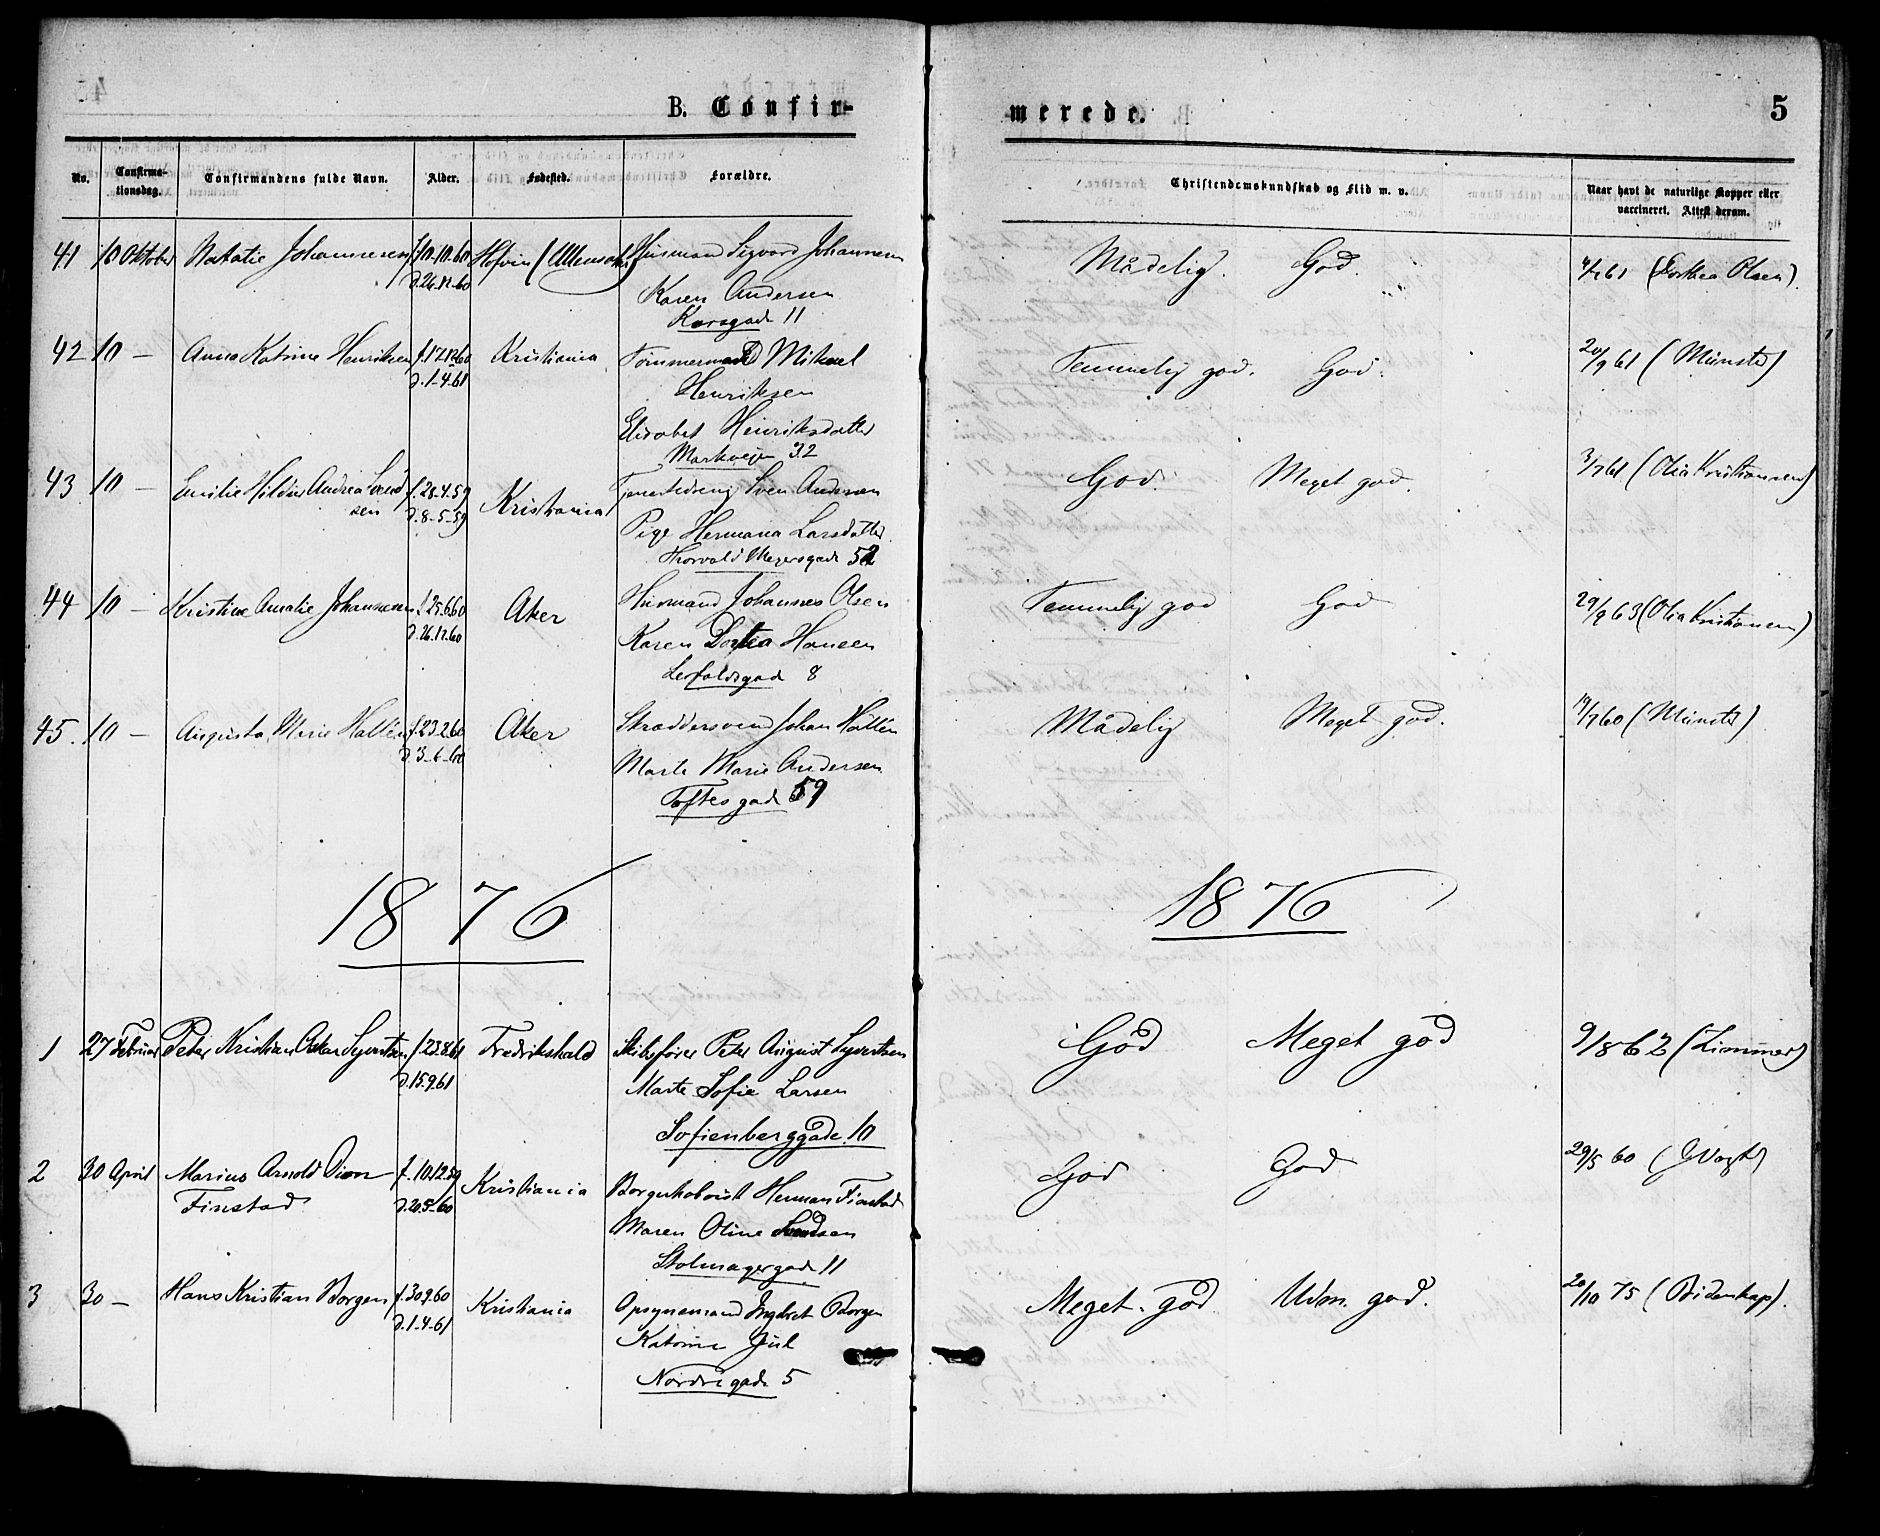 B. Confir-
merede.
5
No.
Confirma-
tionsdag.
Confirmandens fulde Navn.
Alder.
Fødested.
Forældre.
Christendomskundskab og Flid m. v.
Naar havt de naturlige Kopper eller
vaccineret. Attest derom.
41 10 Oktober Natalie Johannesen f. 10-10-60 Hofvin (Ullensaker) Husmand Sigvard Johannesen Mådelig. God. 4/7 61 (Dorthea Olsen).
d. 26.12.60 Karen Andersen
Korsgade 11
42 10 — Anna Katrine Henriksen f. 17.12.60 Kristiania Tømmermand Mikael Temmelig god. God. 20/9 61 (Münster)
d. 1-4-61 Henriksen
Elisabet Henriksdatter
Markvejen 32
43 10 — Emilie Hilda Andrea Svend- f. 28-4.59 Kristiania Tjenestedreng Sven Andersen God. Meget god. 3/7 61 (Olia Kristiansen)
sen d. 8-5-59 Pige Hermana Larsdatter.
Thorvald Meyersgade 52
44 10 — Kristine Amalie Johannesen f. 25.6.60 Aker Husmand Johannes Olsen Temmelig god God 29/9 63 (Olia Kristiansen)
d. 26.12.60 Karen Dortea Hansen
Leifaldsgade 8
45. 10 — Augusta Marie Hallén f. 23.2.60 Aker Skræddersvend Johan Hallén Mådelig Meget god. 19/7 60 (Münster)
d. 3-6-60 Marte Marie Andersen
Toftesgade 59
1876
1876
1 27 Februar Peter Kristian Oskar Syvertsen f. 23.8.61 Fredrikshald Skibsfører Peter August Syvertsen God Meget god 9/8 62 (Zimmer)
d. 15.9.61 Marte Sofie Larsen
Sofienberggade 10
2 30 April Marius Arnold Dion f. 10.12.59 Kristiania Borgerhaboist Herman Finstad God God 29/5 60 (J Vogt)
Finstad d. 20.5-60 Maren Oline Svendsen
Stolmagergade 11
3 30 — Hans Kristian Borgen f. 30.9.60 Kristiania Opsynsmand Ingebret Borgen Meget god. Udm. god. 20/10 75 (Bidenkap).
d. 1-4-61 Katrine Juul
Nordregade 5